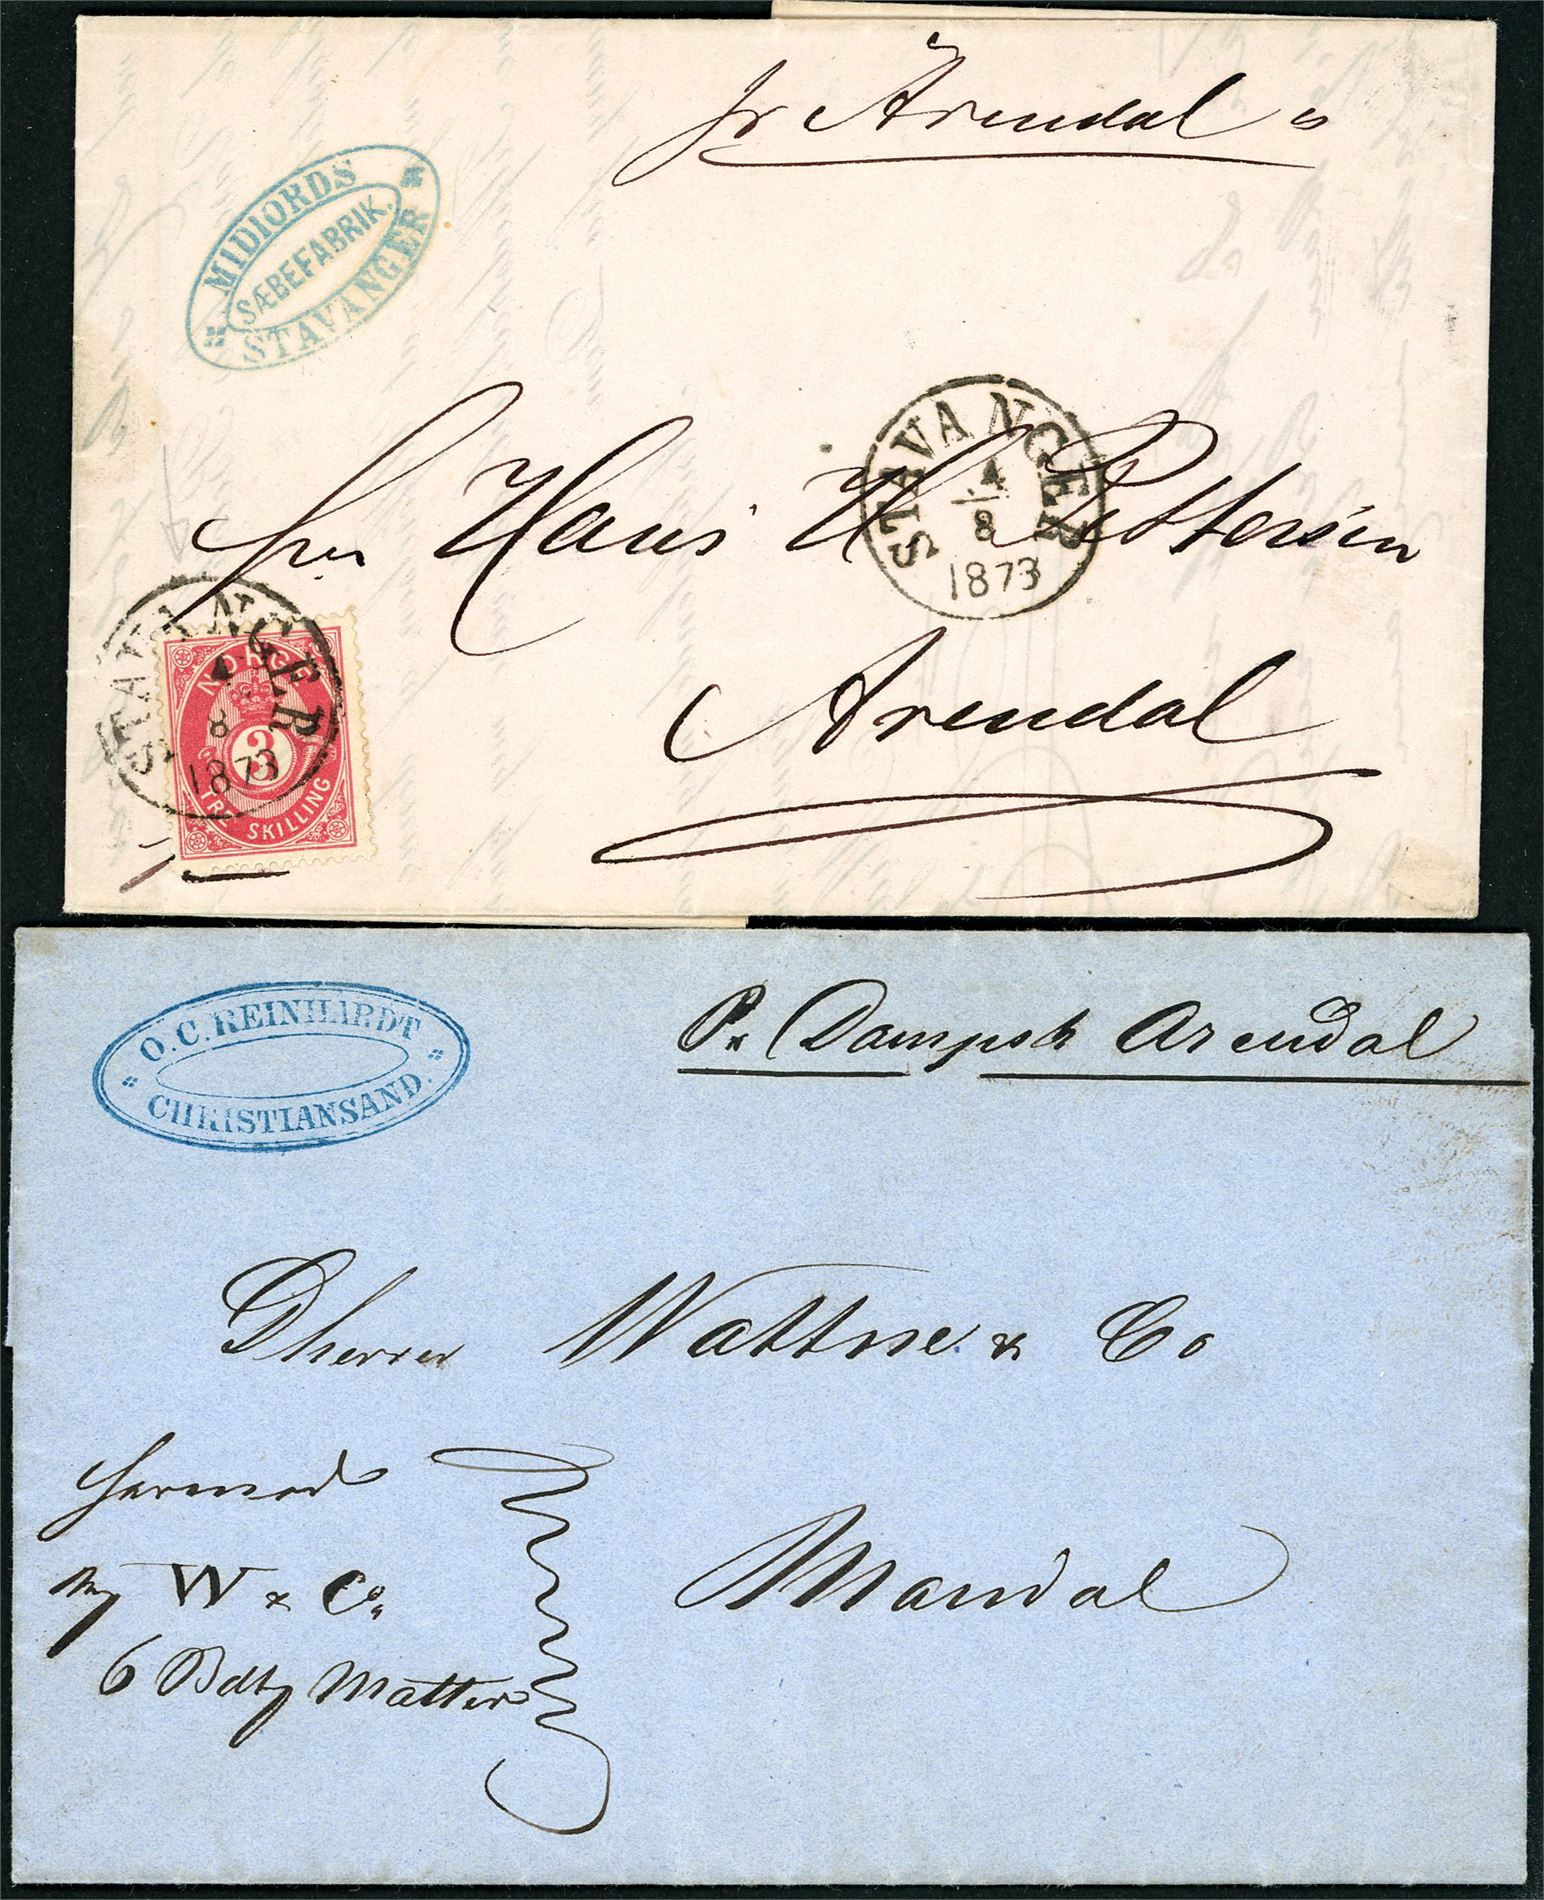 pr Arendal
MIDIORDS
SÆBEFABRIK.
STAVANGER
STAVANGER
4
8
1873
Herr Hans H Pettersen
Arendal
STAVANGER
4
8
1873
NORGE
3
TRE SKILLING
O. C. REINHARDT
CHRISTIANSAND.
Pr Dampsk Arendal
Dherrer Wattne & Co
Hermed
W & Co,
6 Bdtg Matter
Mandal